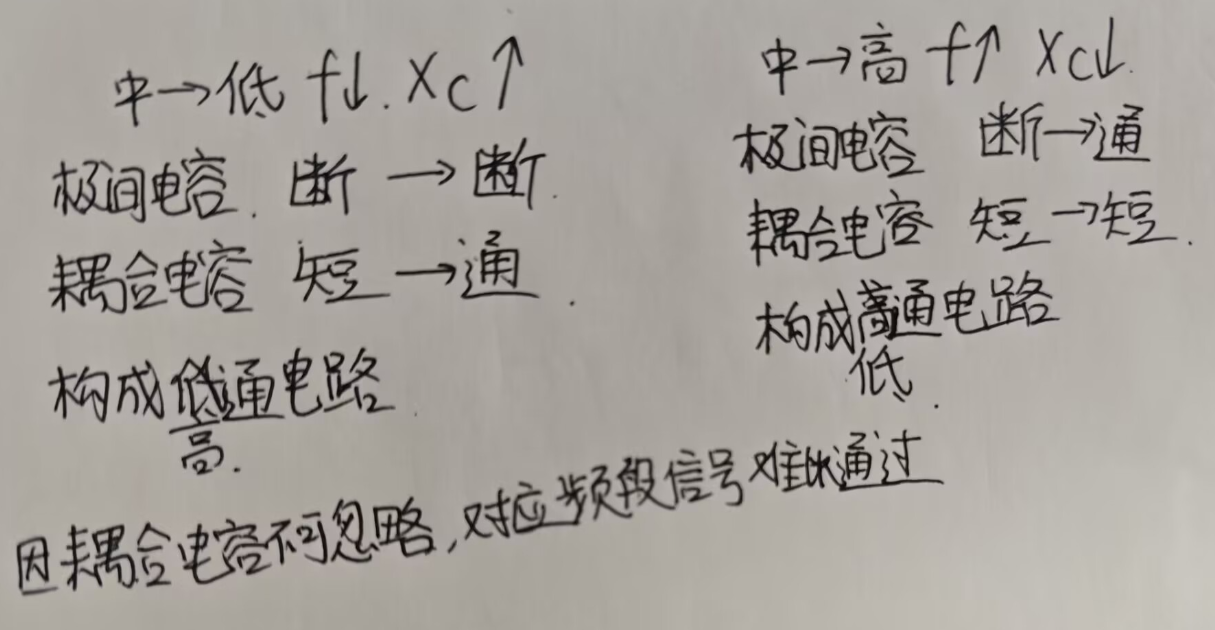 中→低 f↓. Xc↑
极间电容. 断→断.
耦合电容 短→通.
构成低通电路
高.
中→高 f↑ Xc↓.
极间电容 断→通
耦合电容 短→短.
构成高通电路
低.
因耦合电容不可忽略,对应频段信号难以通过